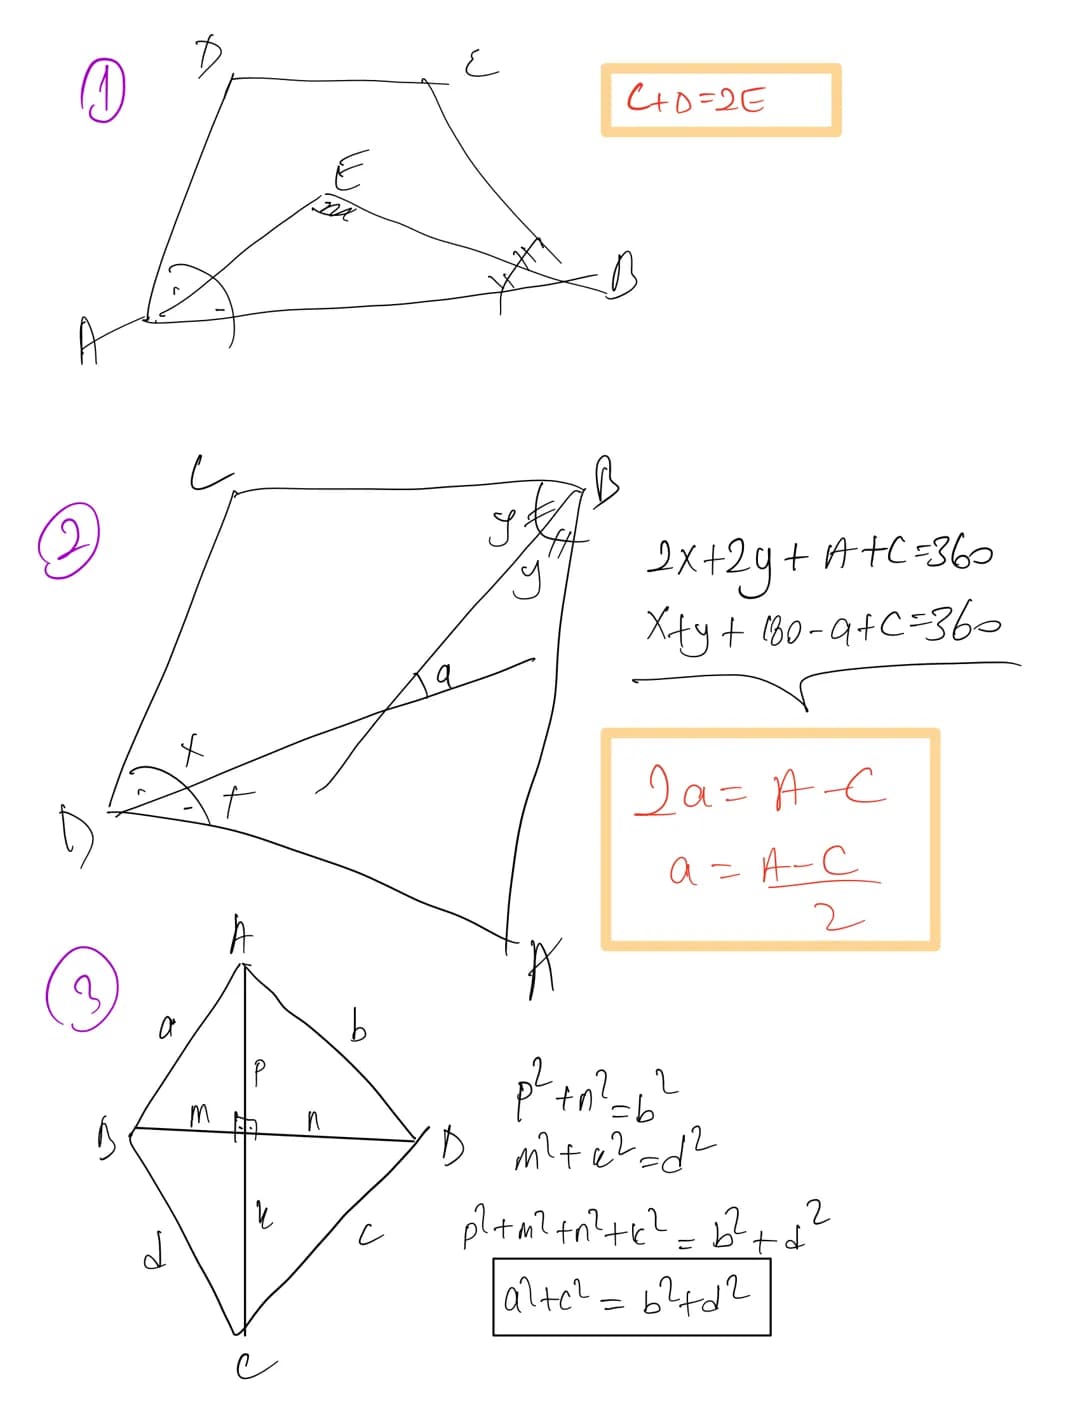 1
D
C
C+D=2E
E
B
A
2
C
B
y
y
2x+2y+A+C=360
x+y+180-a+C=360
a
x
x
D
2a=A-C
a=A-C
2
A
3
A
a
b
p
m
n
B
D
k
d
c
C
p²+n²=b²
m²+k²=d²
p²+m²+n²+k²=b²+d²
a²+c²=b²+d²